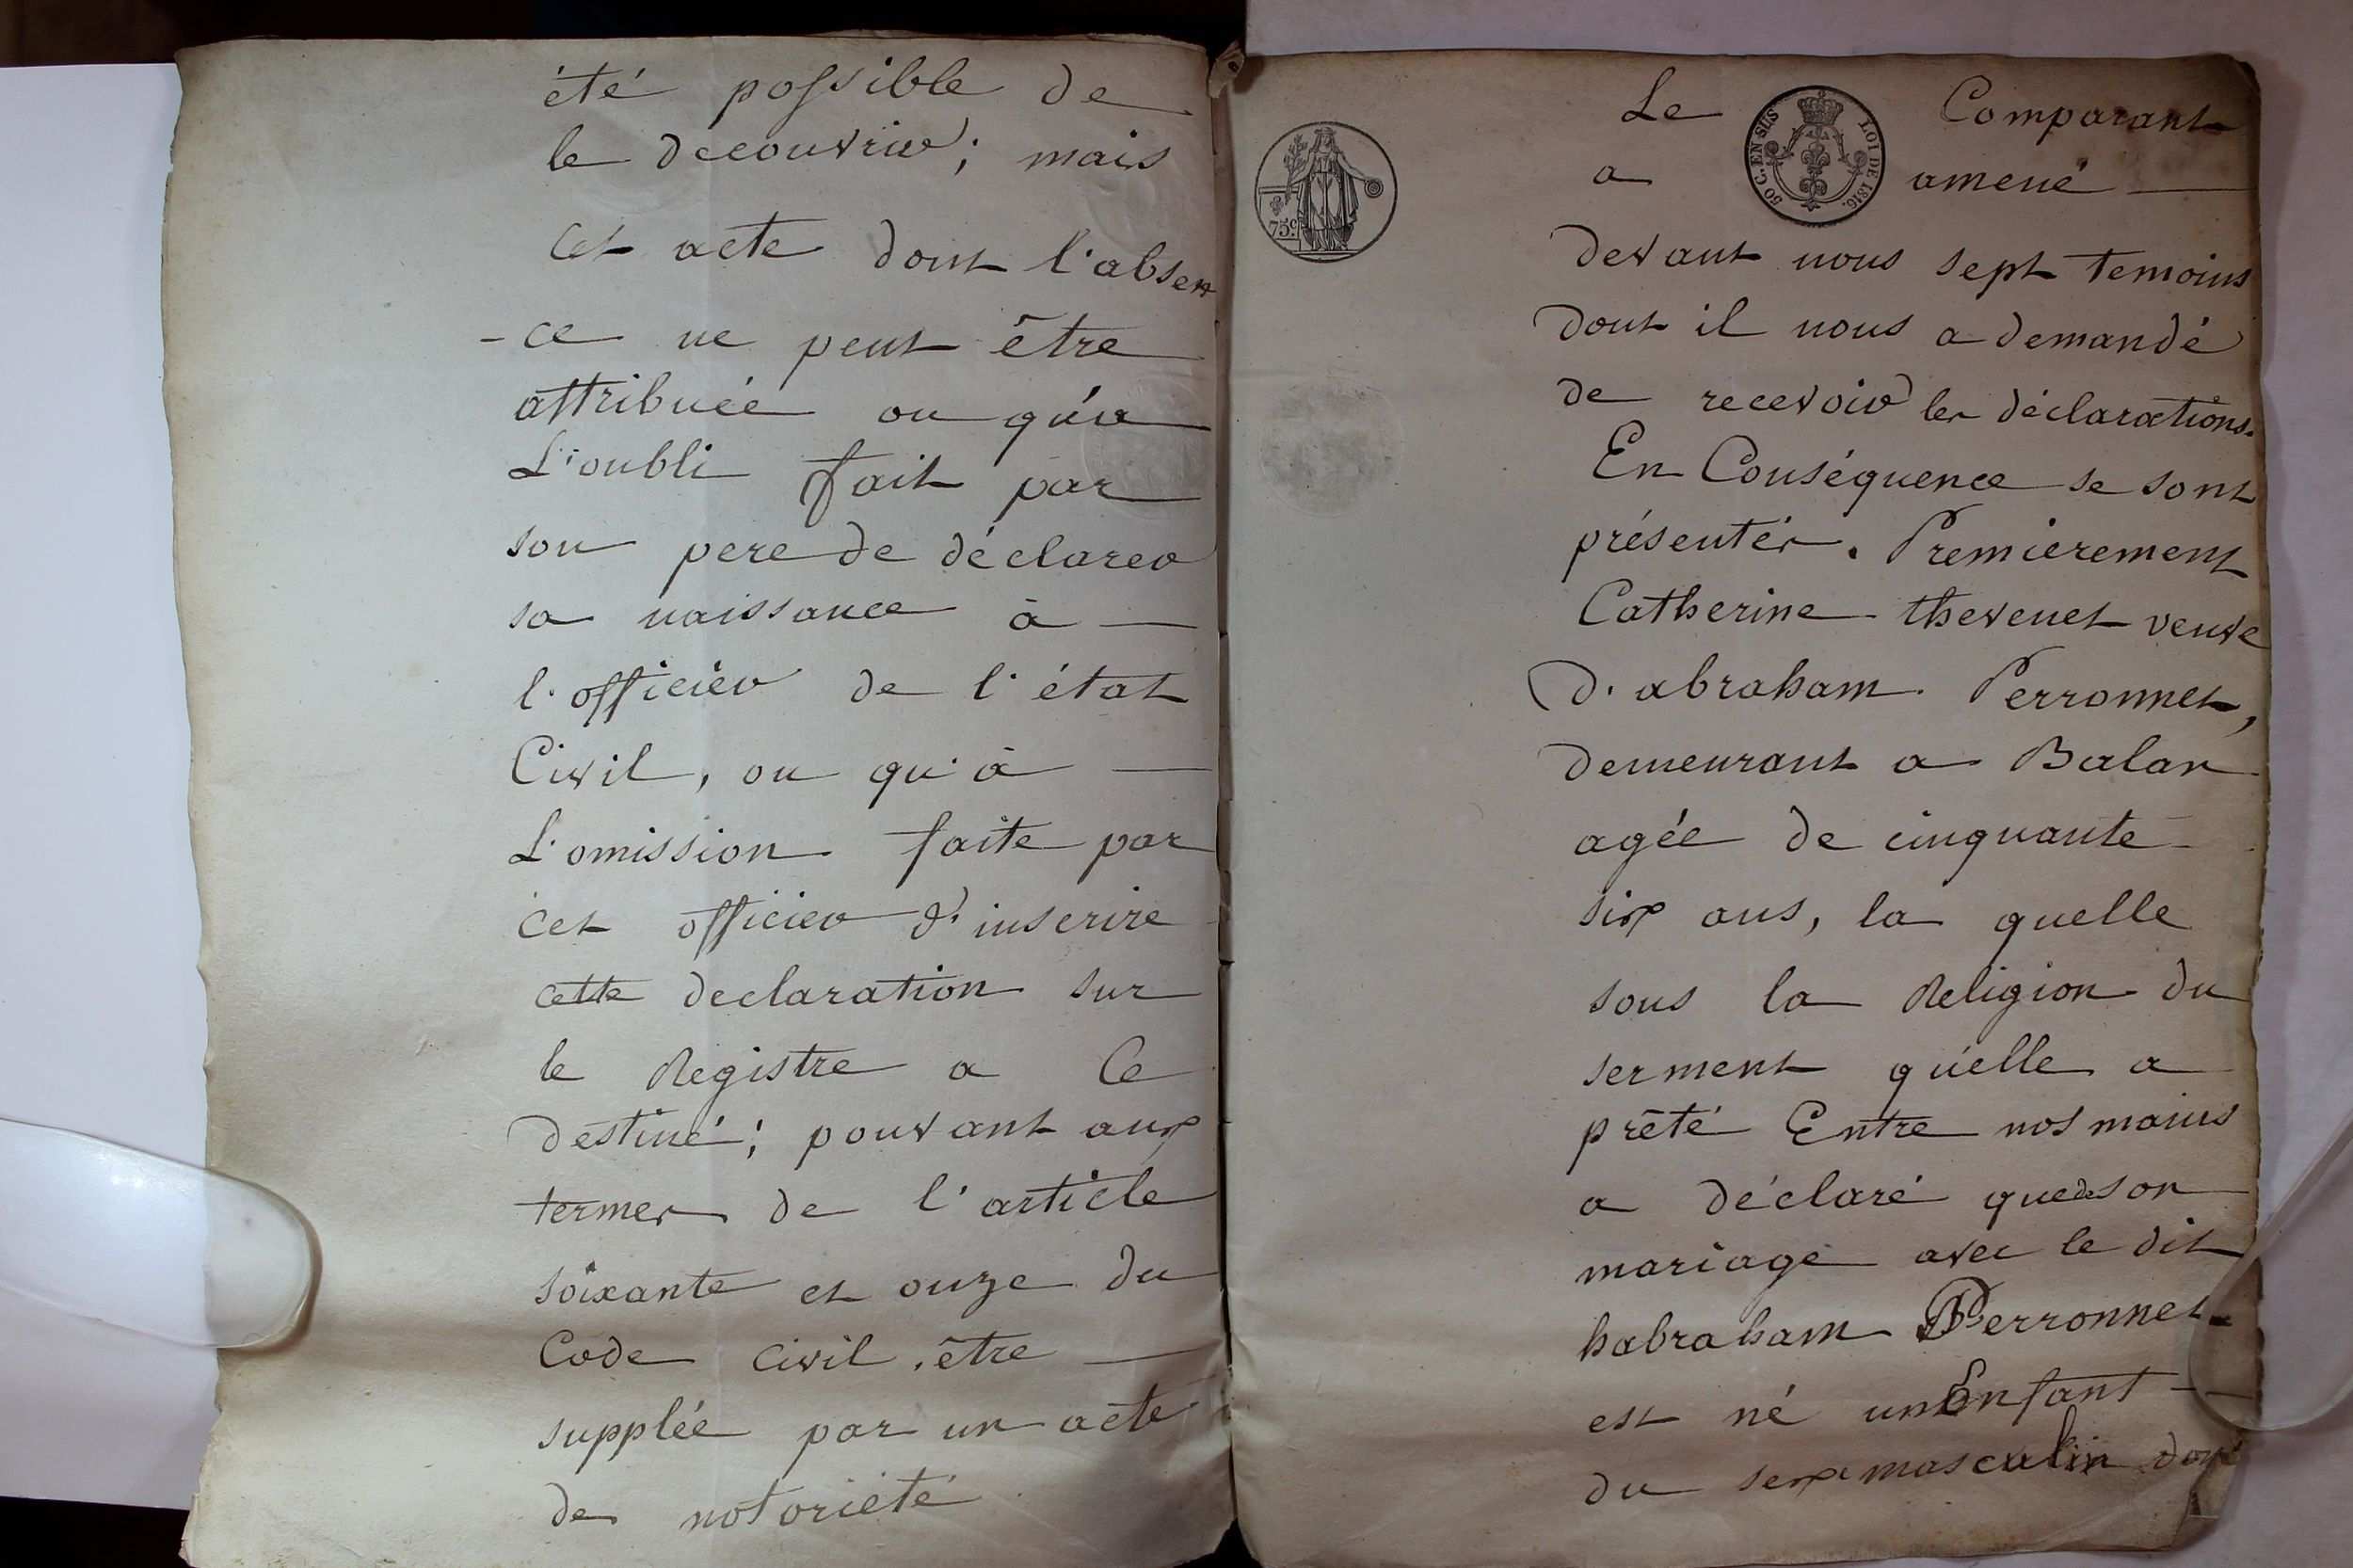 été possible de
le decouvrir; mais
cet acte dont l'absen
-ce ne peut être
attribuée ou qu'a
L'oubli fait par
son pere de déclarer
sa naissance à
l'officier de l'état
Civil, ou qu'à
L'omission faite par
cet officier d'inscrire
cette declaration sur
le Registre a Ce
destiné; pouvant aux
termes de l'article
soixante et onze du
Code Civil, être
supplée par un acte
de notoriété
75c.
50 C. EN SUS LOI DE 1816.
Le Comparant
a amené
devant nous sept temoins
dont il nous a demandé
de recevoir les déclarations.
En Conséquence se sont
présentés. Premierement
Catherine thevenet veuve
d'abraham Perronnet,
demeurant a Balan
agée de cinquante
six ans, la quelle
sous la Religion du
serment qu'elle a
prêté Entre nos mains
a déclaré que de son
mariage avec le dit
habraham Perronnet
est né un Enfant
du sexe masculin dont